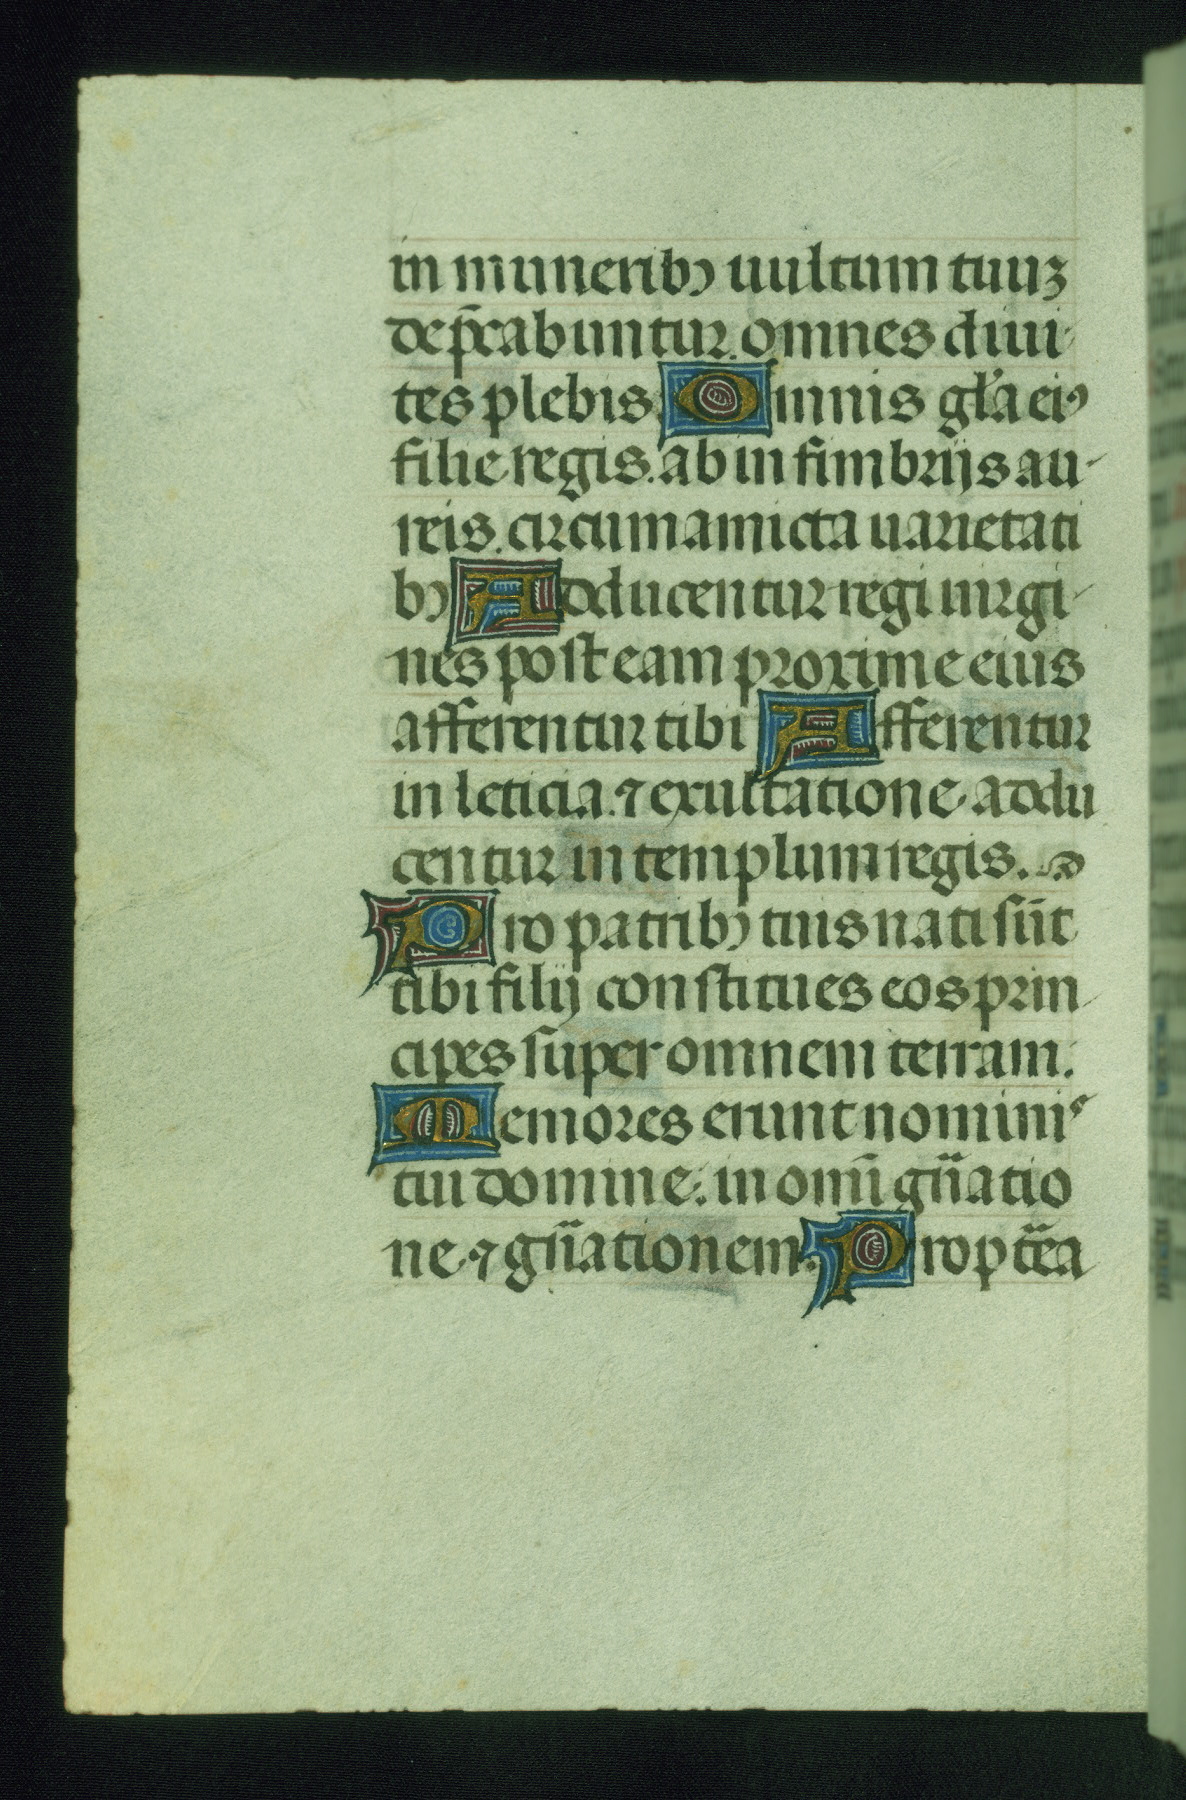 in muneribꝫ uultum tuuꝫ
dep̄cabuntur. omnes diui-
tes plebis. Omnis gl̄a eiꝰ
filie regis. ab in fimbrijs au-
reis. circumamicta uarietati
bꝫ Adducentur regi uirgi-
nes post eam proxime eius
afferentur tibi Afferentur
in leticia. ⁊ exultatione. addu
centur in templum regis.
Pro patribꝫ tuis nati sūt
tibi filij constitues eos prin-
cipes super omnem terram.
Memores erunt nominis
tui domine. in omī gn̄atio
ne. ⁊ gn̄ationem. Propt̄ea